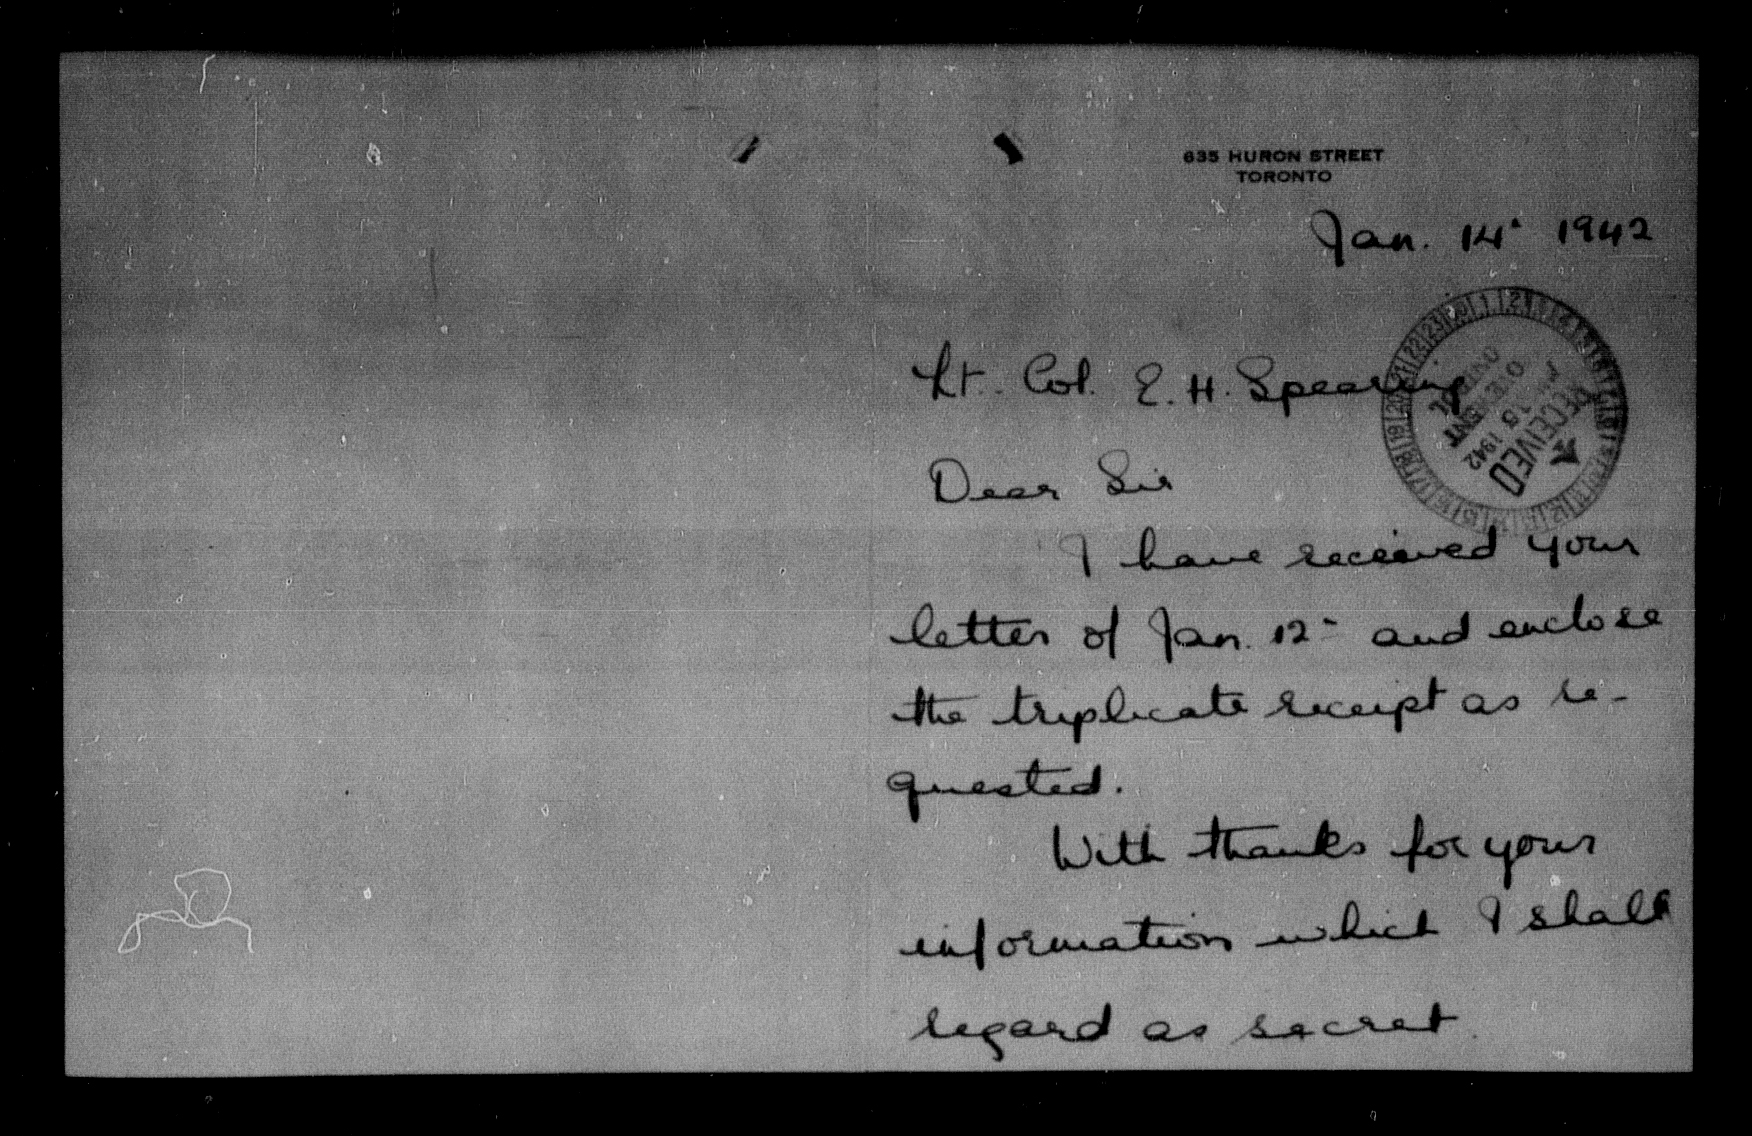 635 HURON STREET
TORONTO
Jan. 14. 1942
Lt. Col. E. H. Spearing
Dear Sir
I have received your
letter of Jan. 12 - and enclose
the triplicate receipt as re-
quested.
With thanks for your
information which I shall
regard as secret.
RECEIVED
15 1942